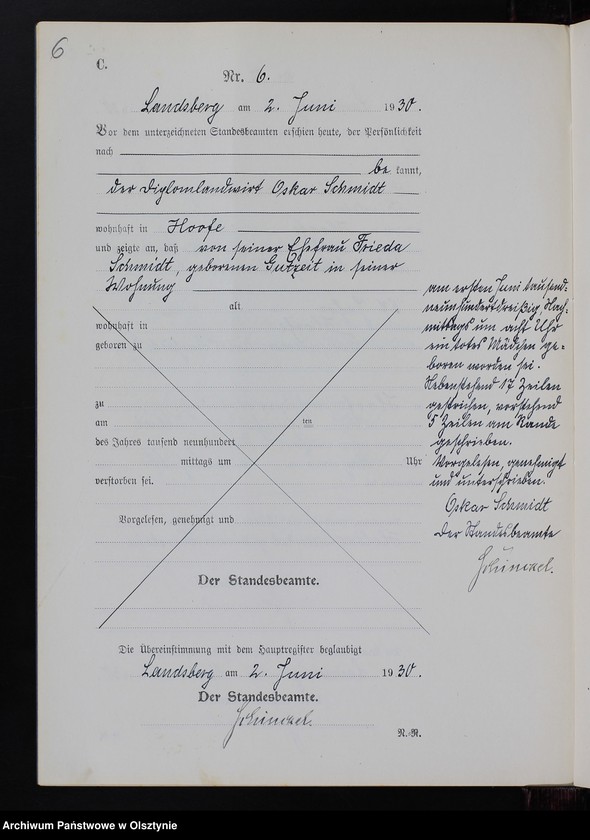 6
C.
Nr. 6.
Landsberg am 2. Juni 1930.
Vor dem unterzeichneten Standesbeamten erschien heute, der Persönlichkeit
nach
be kannt,
der Diplomlandwirt Oskar Schmidt
wohnhaft in Hoofe
und zeigte an, daß von seiner Ehefrau Frieda
Schmidt, geborenen Gutzeit in seiner
Wohnung
alt
wohnhaft in
geboren zu
zu
am ten
des Jahres tausend neunhundert
mittags um Uhr
verstorben sei.
Vorgelesen, genehmigt und
Der Standesbeamte.
am ersten Juni tausend-
neunhundertdreißig, Nach-
mittags um acht Uhr
ein totes Mädchen ge-
boren worden sei.
Nebenstehend 17 Zeilen
gestrichen, vorstehend
5 Zeilen am Rande
geschrieben.
Vorgelesen, genehmigt
und unterschrieben.
Oskar Schmidt
Der Standesbeamte
Die Übereinstimmung mit dem Hauptregister beglaubigt
Landsberg am 2. Juni 1930.
Der Standesbeamte.
N.-R.
Archiwum Państwowe w Olsztynie